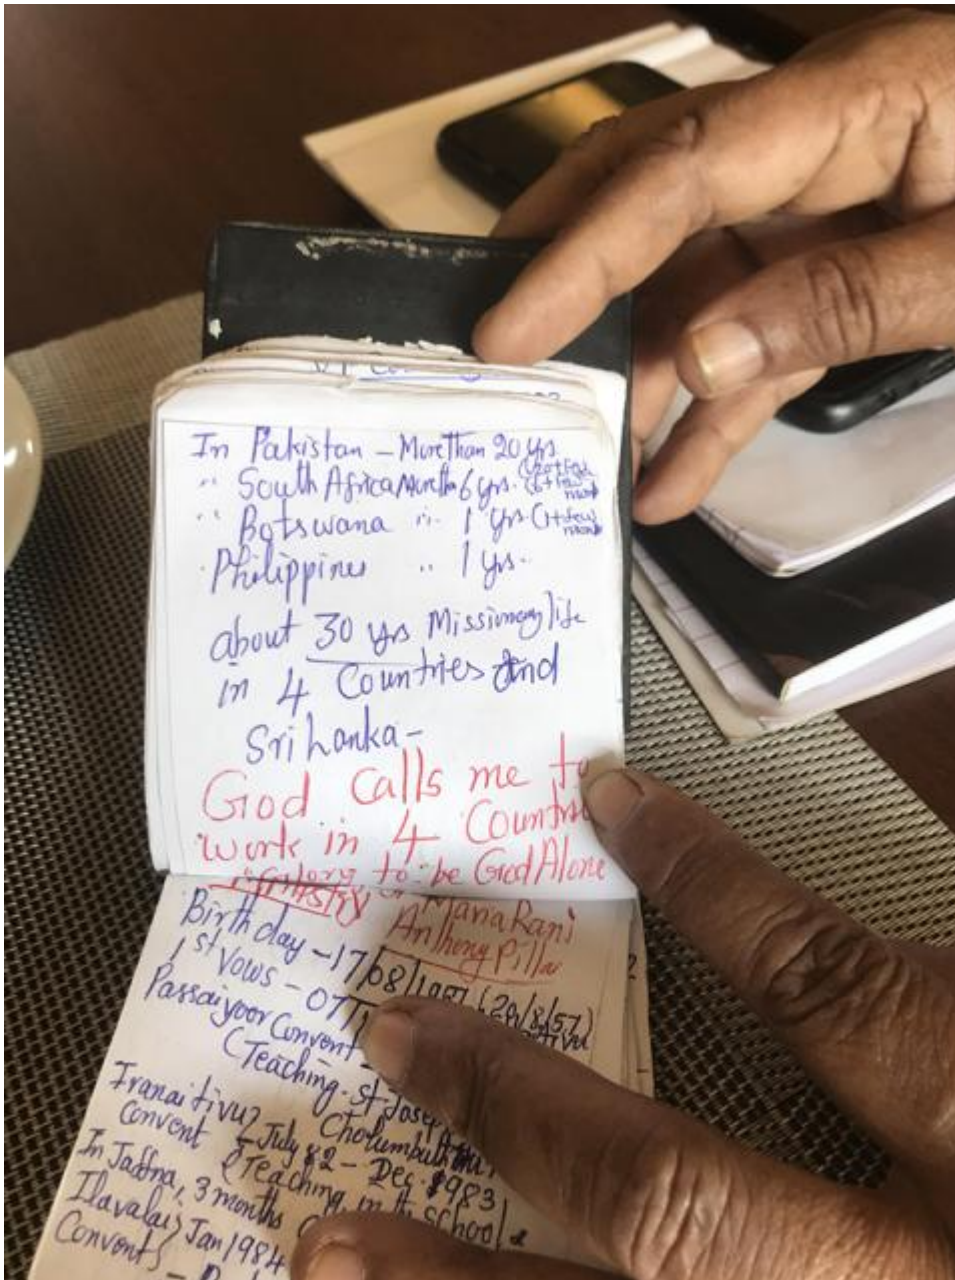 In Pakistan – More than 20 yrs.
" South Africa More than 6 yrs.
" Botswana " 1 yrs (1+few
Philippines " 1 yrs.
about 30 yrs Missionary life
in 4 Countries and
Sri Lanka –
God calls me to
work in 4 Countries
to be God Alone
Maria Rani
Anthony Pillai
Birthday – 17/08/1957 (29/8/57)
1st Vows – 07
Passaiyoor Convent
(Teaching. St. Joseph
Iranaitivu
Convent July 82 – Dec. 1983
(Teaching in the School
In Jaffna, 3 months
Ilavalai Jan 1984
Convent